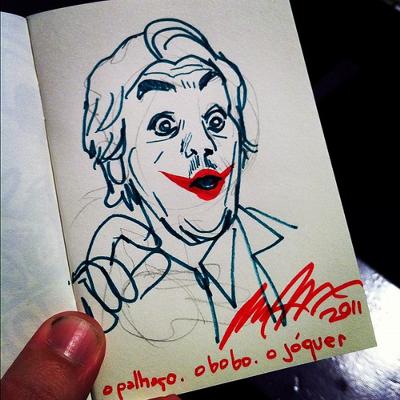 2011
o palhaço. o bobo. o jóquer